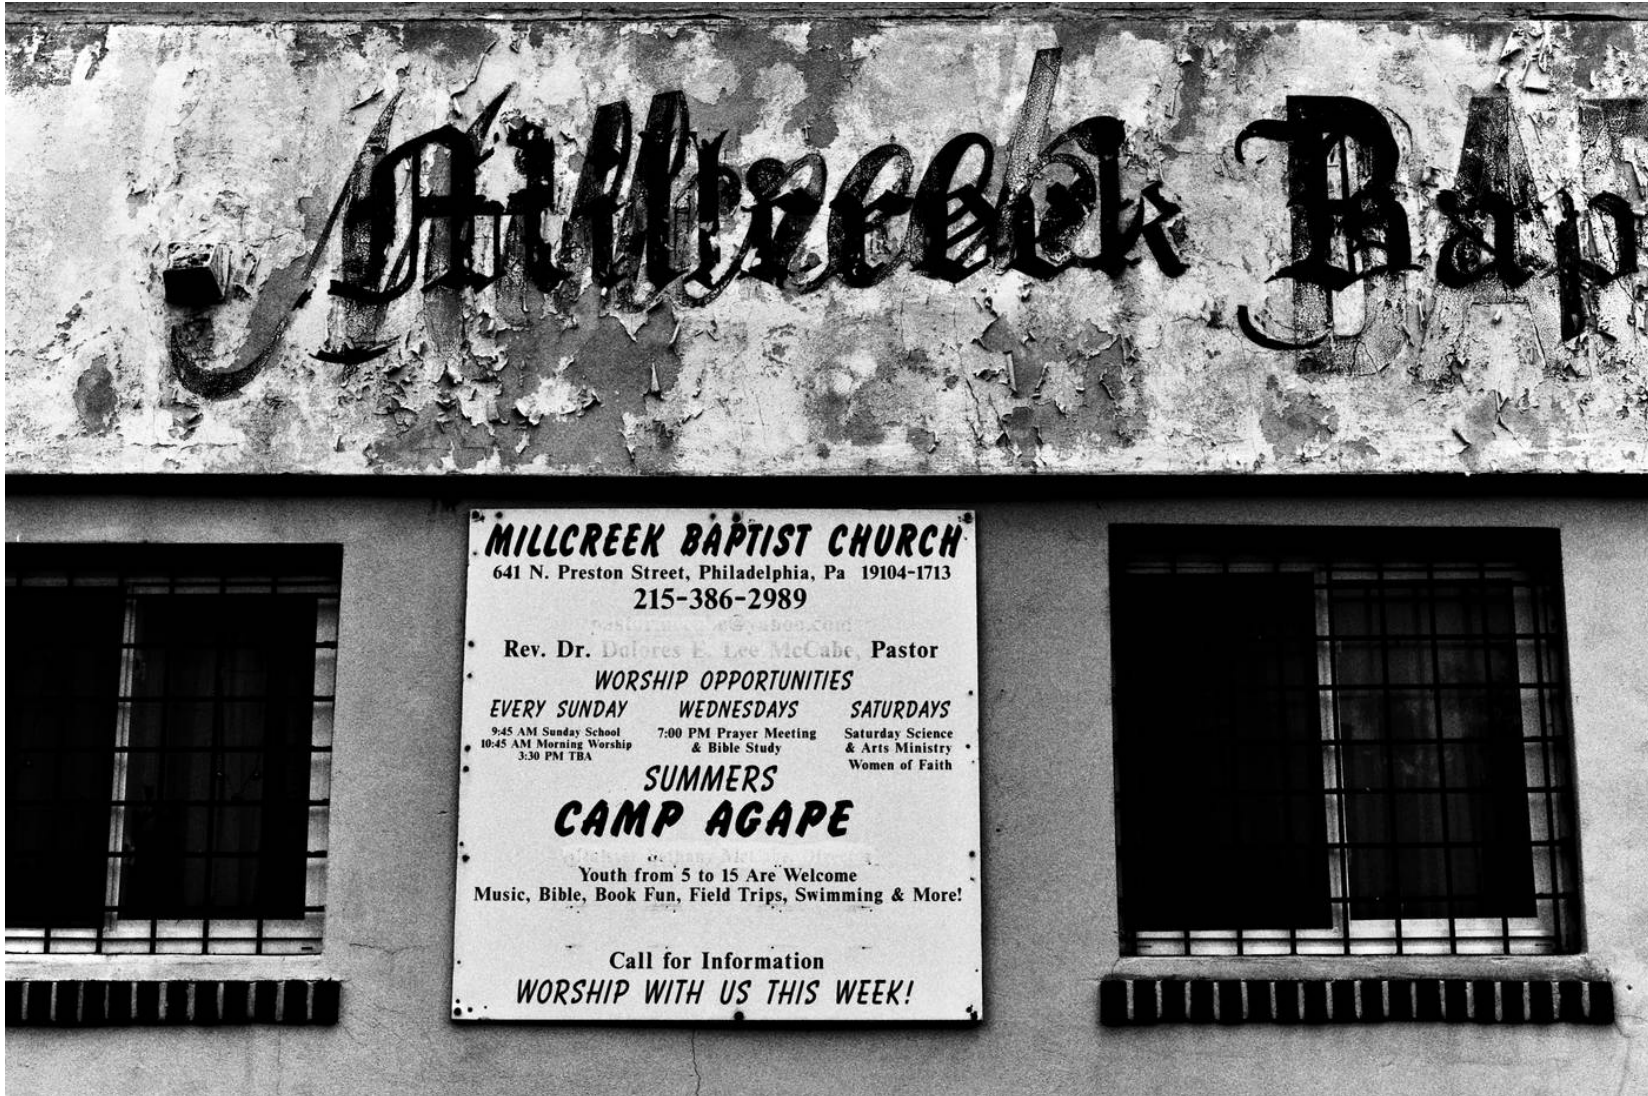 Millcreek Bap
MILLCREEK BAPTIST CHURCH
641 N. Preston Street, Philadelphia, Pa 19104-1713
215-386-2989
Rev. Dr. Dolores E. Lee McCabe, Pastor
WORSHIP OPPORTUNITIES
EVERY SUNDAY
9:45 AM Sunday School
10:45 AM Morning Worship
3:30 PM TBA
WEDNESDAYS
7:00 PM Prayer Meeting
& Bible Study
SATURDAYS
Saturday Science
& Arts Ministry
Women of Faith
SUMMERS
CAMP AGAPE
Youth from 5 to 15 Are Welcome
Music, Bible, Book Fun, Field Trips, Swimming & More!
Call for Information
WORSHIP WITH US THIS WEEK!